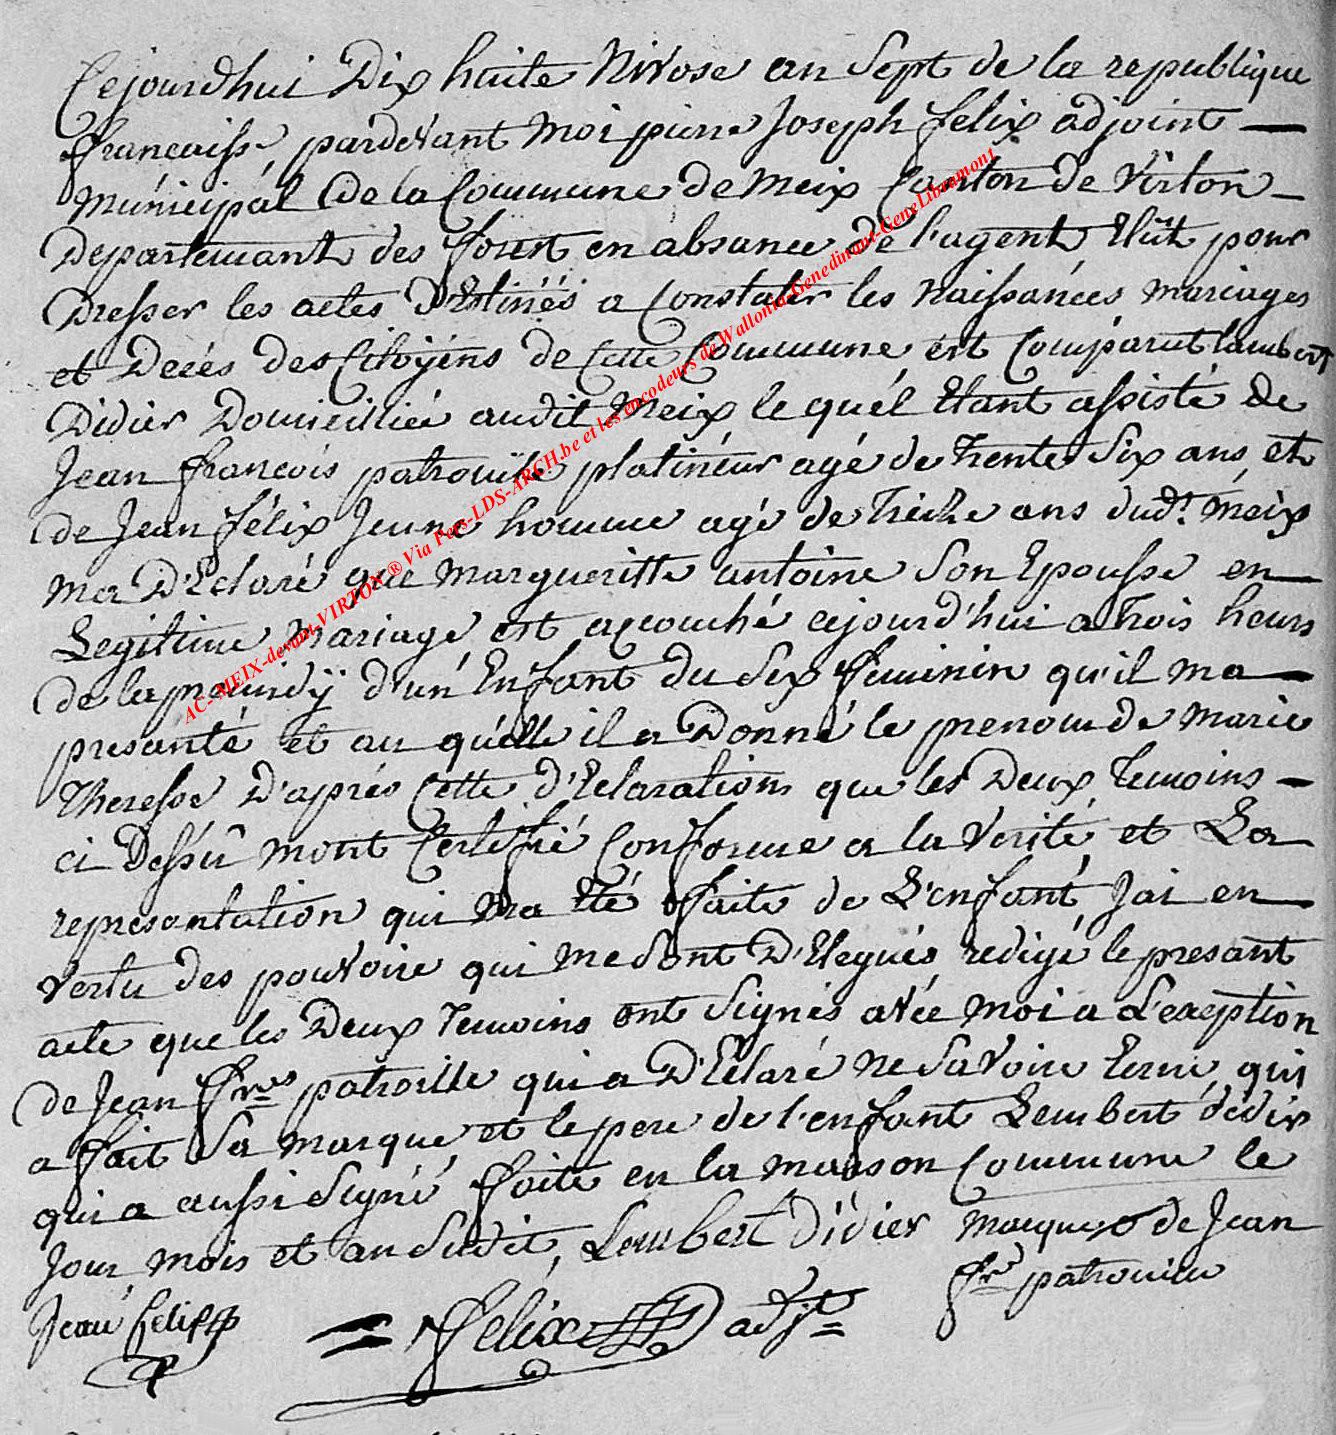 Cejourdhui Dix huite Nivose an Sept de la republique
francaisse, pardevant Moi pierre Joseph felix adjoint
Municipal de la Commune de Meix Canton de Virton
Departemant des forest en absance de l'agent Elut pour
Dresser les actes D'Estinés a Constater les Naissances mariages
et Decés des Citoyens de Cette Commune est Comparut lambert
Didier Domicilliée audit Meix le quél Etant assisté de
Jean francois patrouille platineur agé de Trente Six ans et
de Jean félix Jeune homme agé de Treize ans dudt. Meix
ma D'Eclaré que Margueritte antoine Son Epousse en
Legitime Mariage, est acouché cejourd'hui a trois heurs
de lapremidÿ d'un Enfant du Sex feminin qu'il ma
presanté et au quélle il a Donné le prenom de Marie
Theresse D'aprés Cette d'Eclaration que les Deux Temoins
ci Dessû mont Certifié Conforme a la Verité et La
representation qui ma Eté faite de L'enfant, Jai en
Vertu des pouvoire qui me Sont D'Elegués redigé le presant
acte que les Deux Temoins ont Signés avée Moi a L'exeption
de Jean frs patroille qui a D'Eclaré Ne Savoire Ecrire, qui
a fait Sa Marque, et le pere de l'enfant Lembert dédier
qui a aussi Signé faite en la Maison Commune le
Jour, Mois et an Sudit, Lambert Didier Marque de Jean
frs patrouille
Jean felix
= felix adjt =
AC-MEIX-devant-VIRTON ® Via Pers-LDS-ARCH.be et les encodeurs de Wallonia-Genedinant-GeneLibramont